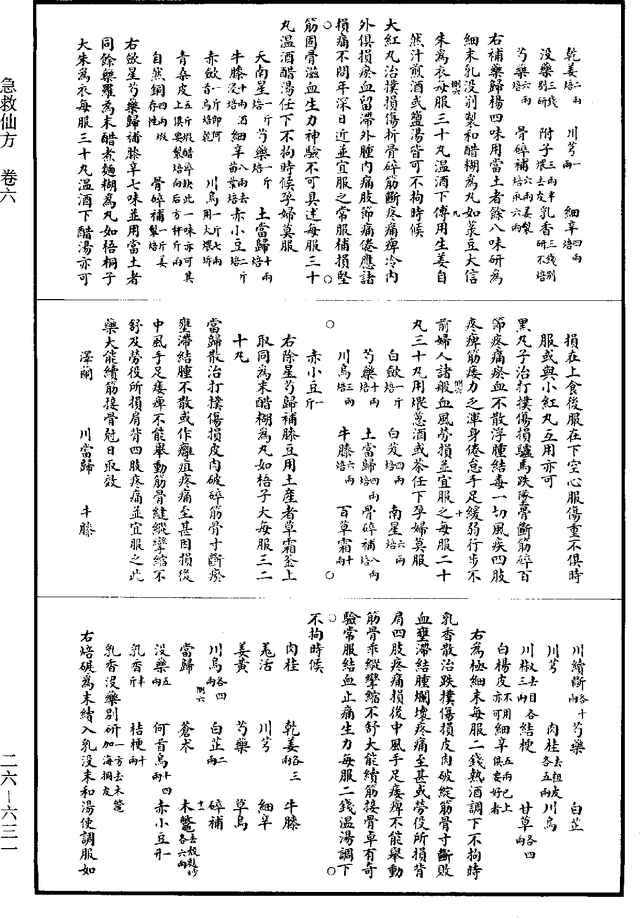 急救仙方 卷六
二六—六三一
乾姜二兩 川芎一兩 細辛四兩
沒藥三錢別研 附子三兩半煨去皮 乳香三錢別研不焙
芍藥六兩 骨碎補六兩姜製焙
右補藥歸楊四味用當土者餘八味研為
細末乳沒別製和醋糊為丸如菉豆大信
朱為衣每服三十丸溫酒下傳用生姜自
然汁煎酒或鹽湯皆可不拘時候
大紅丸治撲損傷折骨碎筋斷疼痛痺冷內
外俱損瘀血留滯外腫內痛肢節痛倦應諸
損痛不問年深日近並宜服之常服補損堅
筋固骨滋血生力神驗不可具述每服三十
丸溫酒醋湯任下不拘時候孕婦莫服
天南星一斤焙 芍藥一斤焙 土當歸十兩焙
牛膝十兩酒浸焙 細辛八兩去苗葉焙 赤小豆二斤焙
赤斂一斤即何首烏焙乾 川烏一斤七兩火煨拆
青桑皮五斤煅醋淬欠此一味亦可其上俱要製焙向後方秤斤兩
自然銅四兩煅存性 骨碎補一斤姜製焙
右斂星芍藥歸補膝辛七味並用當土者
同餘藥羅為末醋煮麵糊為丸如梧桐子
大朱為衣每服三十丸溫酒下醋湯亦可
損在上食後服在下空心服傷重不俱時
服或與小紅丸互用亦可
黑丸子治打撲傷損驢馬跌墜骨斷筋碎百
節疼痛瘀血不散浮腫結毒一切風疾四肢
疼痺筋痿力乏渾身倦怠手足緩弱行步不
前婦人諸般血風勞損並宜服之每服二十
丸三十丸用煨蔥酒或茶任下孕婦莫服
白斂一斤焙 白芨四兩焙 南星六兩焙
芍藥十兩焙 土當歸四兩焙 骨碎補八兩焙
川烏三兩焙 牛膝六兩焙 百草霜兩
赤小豆一斤
右除星芍歸補膝豆用土產者草霜釜上
取同為末醋糊為丸如梧子大每服三二
十丸
當歸散治打撲傷損皮肉破碎筋骨寸斷瘀
壅滯結腫不散或作癰疽疼痛至甚因損後
中風手足痿痺不能舉動筋骨縫縱攣縮不
舒及勞役所損肩背四肢疼痛並宜服之此
藥大能續筋接骨剋日取效
澤蘭 川當歸 牛膝
川續斷各十兩 芍藥 白芷
川芎 肉桂去粗皮各五兩 川烏
川椒去目三兩 各桔梗 甘草各四兩
白楊皮不用亦可 細辛五兩已上俱要好者
右為極細末每服二錢熱酒調下不拘時
乳香散治跌撲傷損皮肉破綻筋骨寸斷敗
血壅滯結腫爛壞疼痛至甚或勞役所損背
肩四肢疼痛損後中風手足痿痺不能舉動
筋骨乖縱攣縮不舒大能續筋接骨卓有奇
驗常服結血止痛生力每服二錢溫湯調下
不拘時候
肉桂 乾姜各三兩 牛膝
羗活 川芎 細辛
姜黃 芍藥 草烏
川烏各四兩 白芷二兩 碎補
當歸 蒼朮 木鱉去殼麩炒各六兩
沒藥五兩 何首烏十四兩 赤小豆一升
乳香半斤 桔梗十兩
乳香沒藥別研一方去木鱉加海桐皮
右焙碾為末續入乳沒末和湯使調服如